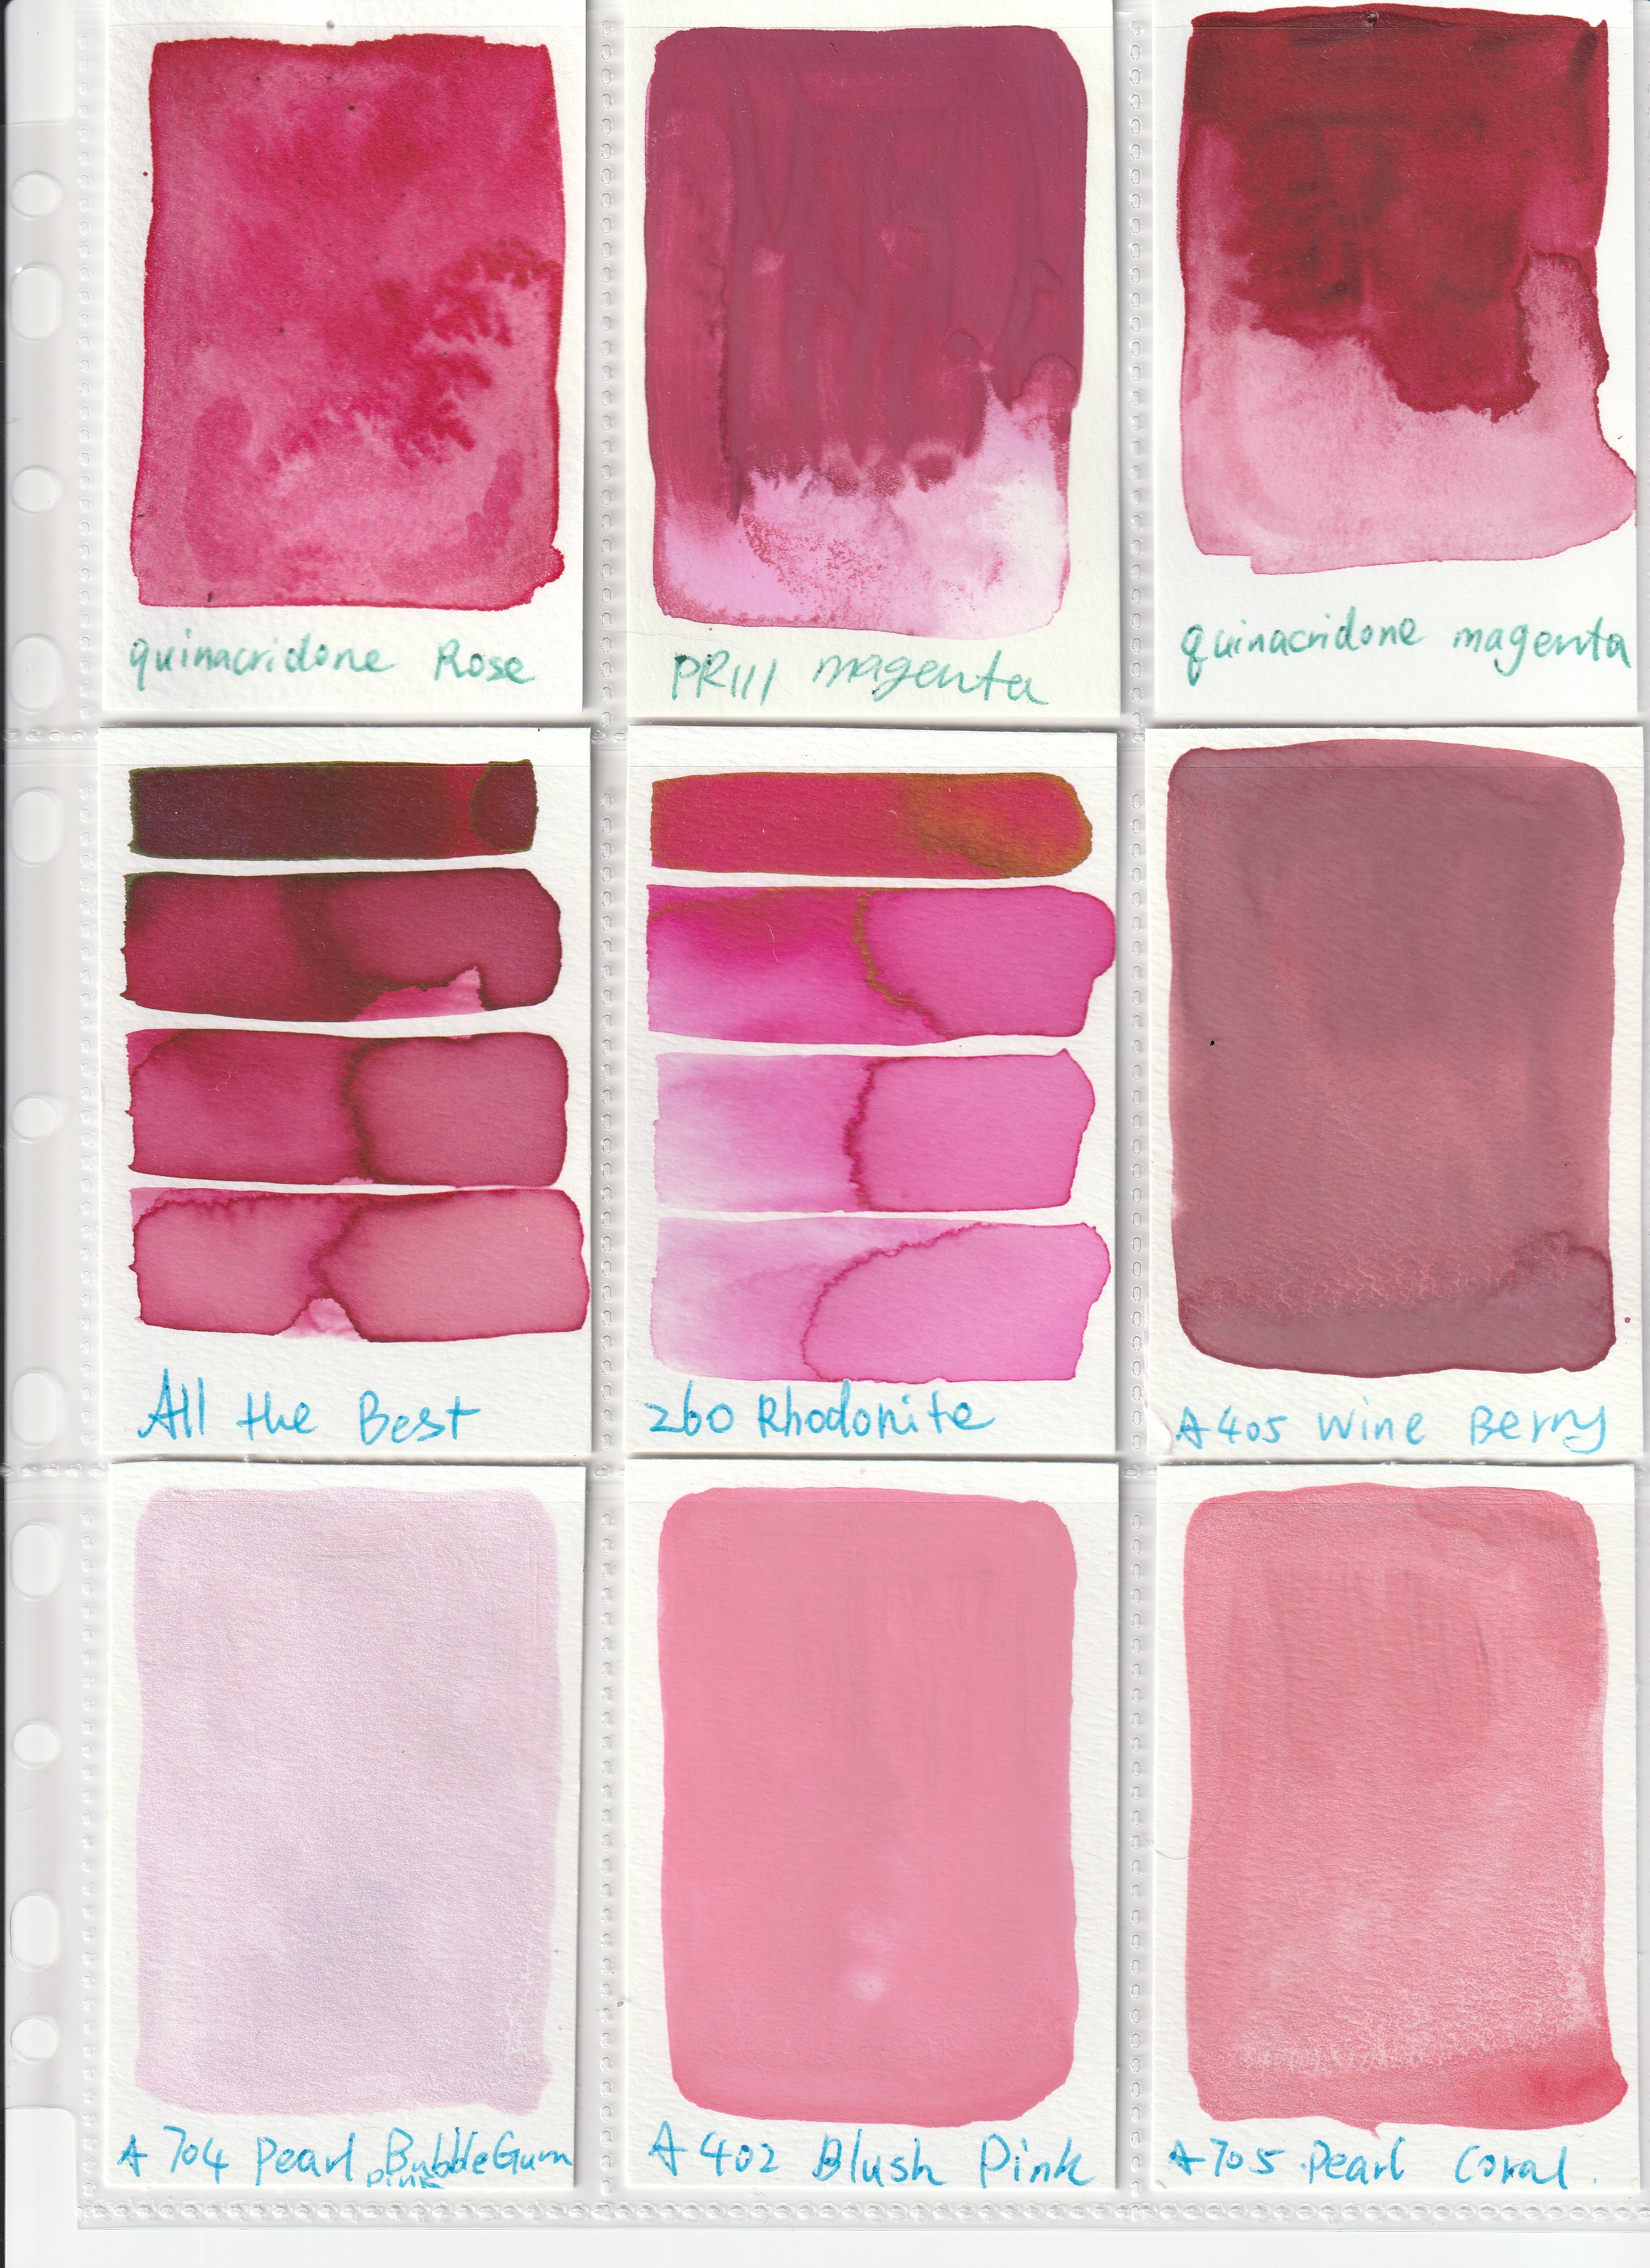 quinacridone Rose
PR111 magenta
quinacridone magenta
All the Best
260 Rhodonite
A405 Wine Berry
A704 Pearl BubbleGum
pink
A402 Blush Pink
A705 Pearl Coral.